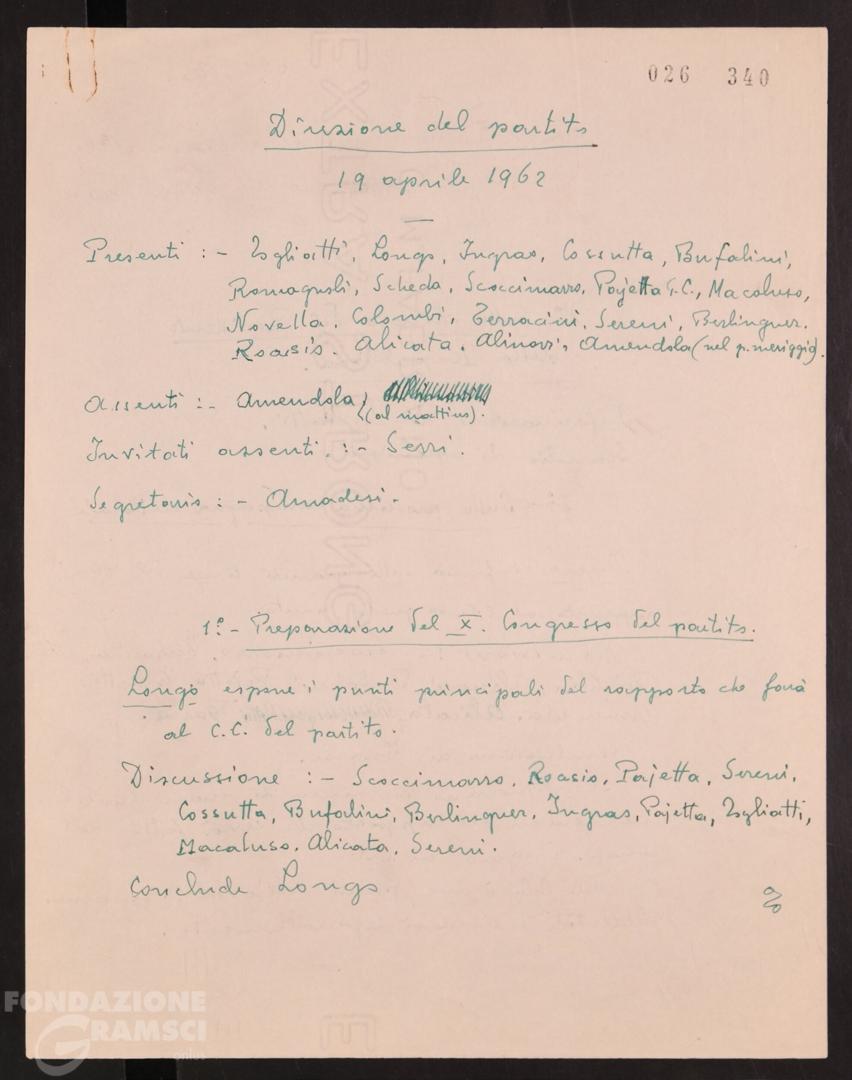 026 340
Direzione del partito
19 aprile 1962
Presenti : - Togliatti, Longo, Ingrao, Cossutta, Bufalini,
Romagnoli, Scheda, Scoccimarro, Pajetta G.C., Macaluso,
Novella, Colombi, Terracini, Sereni, Berlinguer.
Roasio. Alicata. Alinovi, Amendola (nel p.meriggio).
Assenti :- Amendola,
(al mattino).
Invitati assenti. :- Serri.
Segretario : - Amadesi.
1º.- Preparazione del X. Congresso del partito.
Longo espone i punti principali del rapporto che farà
al C.C. del partito.
Discussione :- Scoccimarro, Roasio, Pajetta, Sereni,
Cossutta, Bufalini, Berlinguer, Ingrao, Pajetta, Togliatti,
Macaluso, Alicata, Sereni.
Conclude Longo
FONDAZIONE
GRAMSCI
onlus